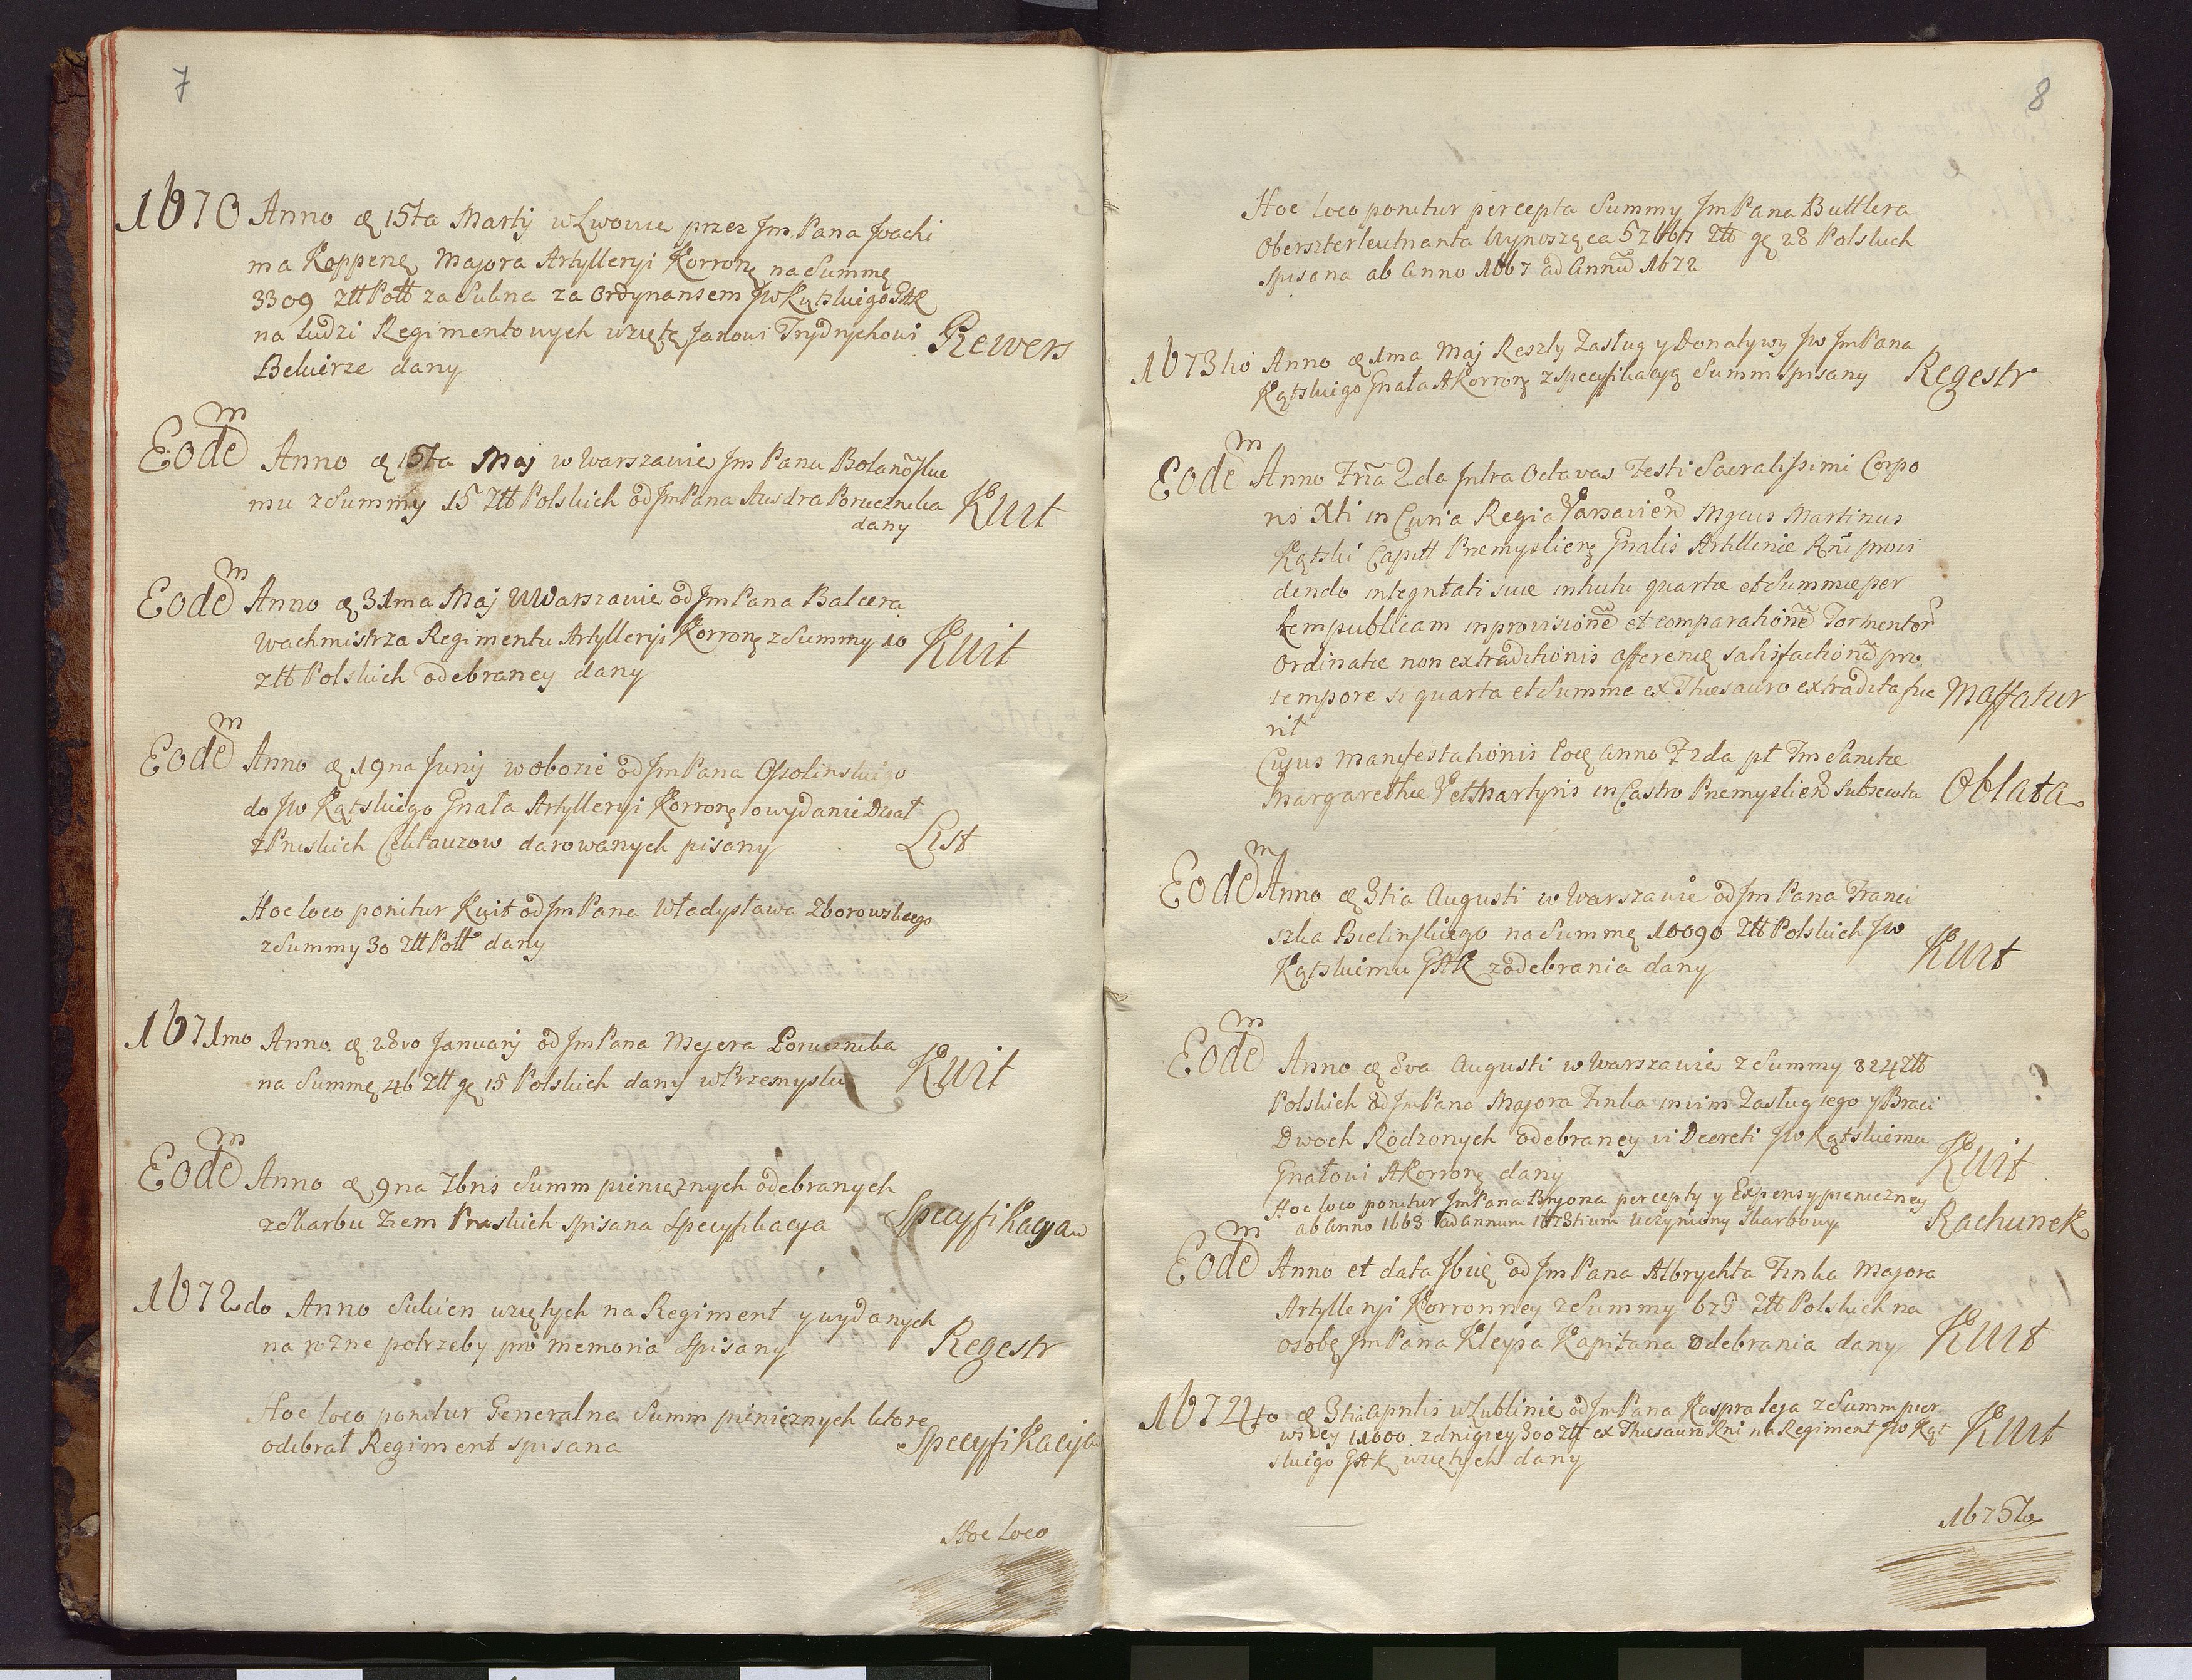 7
1670 Anno đ 15ta Martij w Lwowie przez Jm Pana Joachi
ma Koppenę Majora Artylleryi Korronę na Summę
3309 Ztt Pott za Sukna za Ordynansem Jw Kątskiego GAK
na ludzi Regimentowych wziętę Janowi Frydrychowi Rewers
Bekierze dany
Eodem Anno đ 15ta Maj w Warszawie Jm Panu Bolanoskie
mu z Summy 15 Ztt Polskich od Jm Pana Ausdra Porucznika Kwit
dany
Eodem Anno đ 31ma Maj w Warszawie od Jm Pana Balcera
Wachmistrza Regimentu Artylleryi Korronę z Summy 10 Kwit
ztt Polskich odebraney dany
Eodem Anno đ 19na Junij w obozie od Jm Pana Ossolinskiego
do Jw Kątskiego Gnała Artylleryi Korronę o wydanie Dział
z Pruskich Cekhauzow darowanych pisany List
Hoc loco ponitur Kwit od Jm Pana Władysława Zborowskiego
z Summy 30 Ztt Pott dany
1671mo Anno đ 28vo Januarij od Jm Pana Mejera Porucznika
na Summę 46 Ztt gę 15 Polskich dany w Przemyslu Kwit
Eodem Anno đ 9na 7bris Summ pieniężnych odebranych
z Skarbu Ziem Pruskich spisana Specyfikacya Specyfikacya
1672do Anno Sukien wziętych na Regiment y wydanych
na rożne potrzeby pro memoria spisany Regestr
Hoc loco ponitur Generalna Summ pieniężnych ktore
odebrał Regiment spisana Specyfikacija
Hoc loco
8
Hoc loco ponitur percepta Summy Jm Pana Buttlera
Oberszterleutnanta Wynosząca 57667 Ztt gę 28 Polskich
spisana ab Anno 1667 ad Annũ 1672
1673tio Anno đ 1ma Maj Reszty Zasług y Donatywy Jw Jm Pana
Kątskiego Gnała A Korronę z specyfikacyą Summ spisany Regestr
Eodem Anno Fria 2da Intra Octavas Festi Sacratissimi Corpo
ris Xti in Curia Regia Varsavien Mgcus Martinus
Kątski Capitt Premyslienę Gnalis Artillerie Rni provi
dendo integritati sue intuitu quartæ et Summæ per
Rempublicam in provisionẽ et comparationẽ Tormentor
Ordinatæ non extraditionis offerenę satisfactionẽ pro
tempore si quarta et Summe ex Thesauro extradita fue Maffatur
rit
Cujus manifestationis Eoę anno F 2da pt Fm Sanctæ
Margarethæ V et Martyris in Castro Premyslien Subsecuta Oblata
Eodem Anno đ 3tia Augusti w Warszawie od Jm Pana Franci
szka Bielinskiego na Summę 10090 Ztt Polskich Jw
Kątskiemu GAK z odebrania dany Kwit
Eodem Anno đ 8va Augusti w Warszawie z Summy 824 Ztt
Polskich od Jm Pana Majora Finka in vim Zasług iego y Braci
Dwoch Rodzonych odebraney vi Decreti Jw Kątskiemu
Gnałowi A Korronę dany Kwit
Hoc loco ponitur Jm Pana Bryona percepty y Expensy pieniezney
ab Anno 1663 ad annum 1673tium Uczyniony Skarbowy Rachunek
Eodem Anno et data Ibię od Jm Pana Albrychta Finka Majora
Artylleryi Korronney z Summy 675 Ztt Polskich na
osobę Jm Pana Kleysa Kapitana odebrania dany Kwit
1674to đ 3tia Aprilis w Lublinie od Jm Pana Kaspra leja z Summ pier
wszey 11000 z drugiey 300 Ztt ex Thesauro Rni na Regiment Jw Kąt Kwit
skiego GAK wziętych dany
1675to